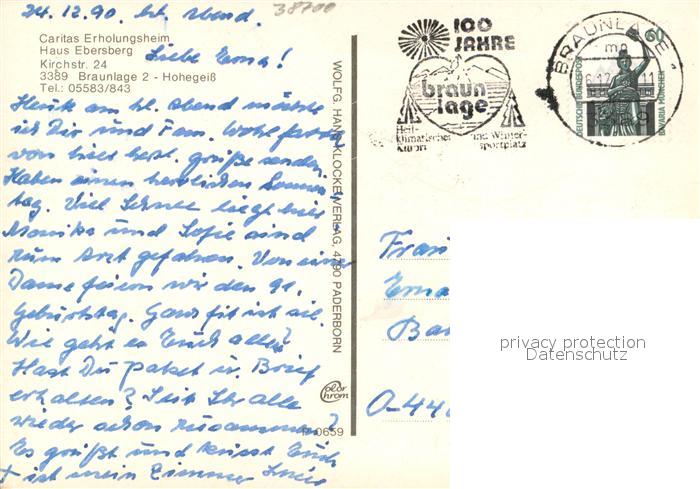 24.12.90. hl. Abend.
38700
Caritas Erholungsheim
Haus Ebersberg
Kirchstr. 24
3389 Braunlage 2 - Hohegeiß
Tel.: 05583/843
Liebe Erna!
Heute am hl. Abend möchte
ich Dir und Fam. Wohlfarth
von hier herzl. Grüße senden.
Haben einen herrlichen Sonnen
tag. Viel Schnee liegt hier
Monika und Sofie sind
zum Arzt gefahren. Von einer
Dame feiern wir den 91.
Geburtstag. Ganz fit ist sie.
Wie geht es Euch allen?
Hast Du Paket u. Brief
erhalten? Seit Ihr alle
wieder schon zusammen?
Es grüßt und küsst Euch
+ ist mein Zimmer
WOLFG. HANS KLOCKE VERLAG, 4790 PADERBORN
Color Chrom
0659
100
JAHRE
braun
lage
Heil-
klimatischer
Kurort
und Winter-
sportplatz
BRAUNLAGE
mn
60
DEUTSCHE BUNDESPOST
BAVARIA MÜNCHEN
Frau
Erna
Ba
O-44
privacy protection
Datenschutz